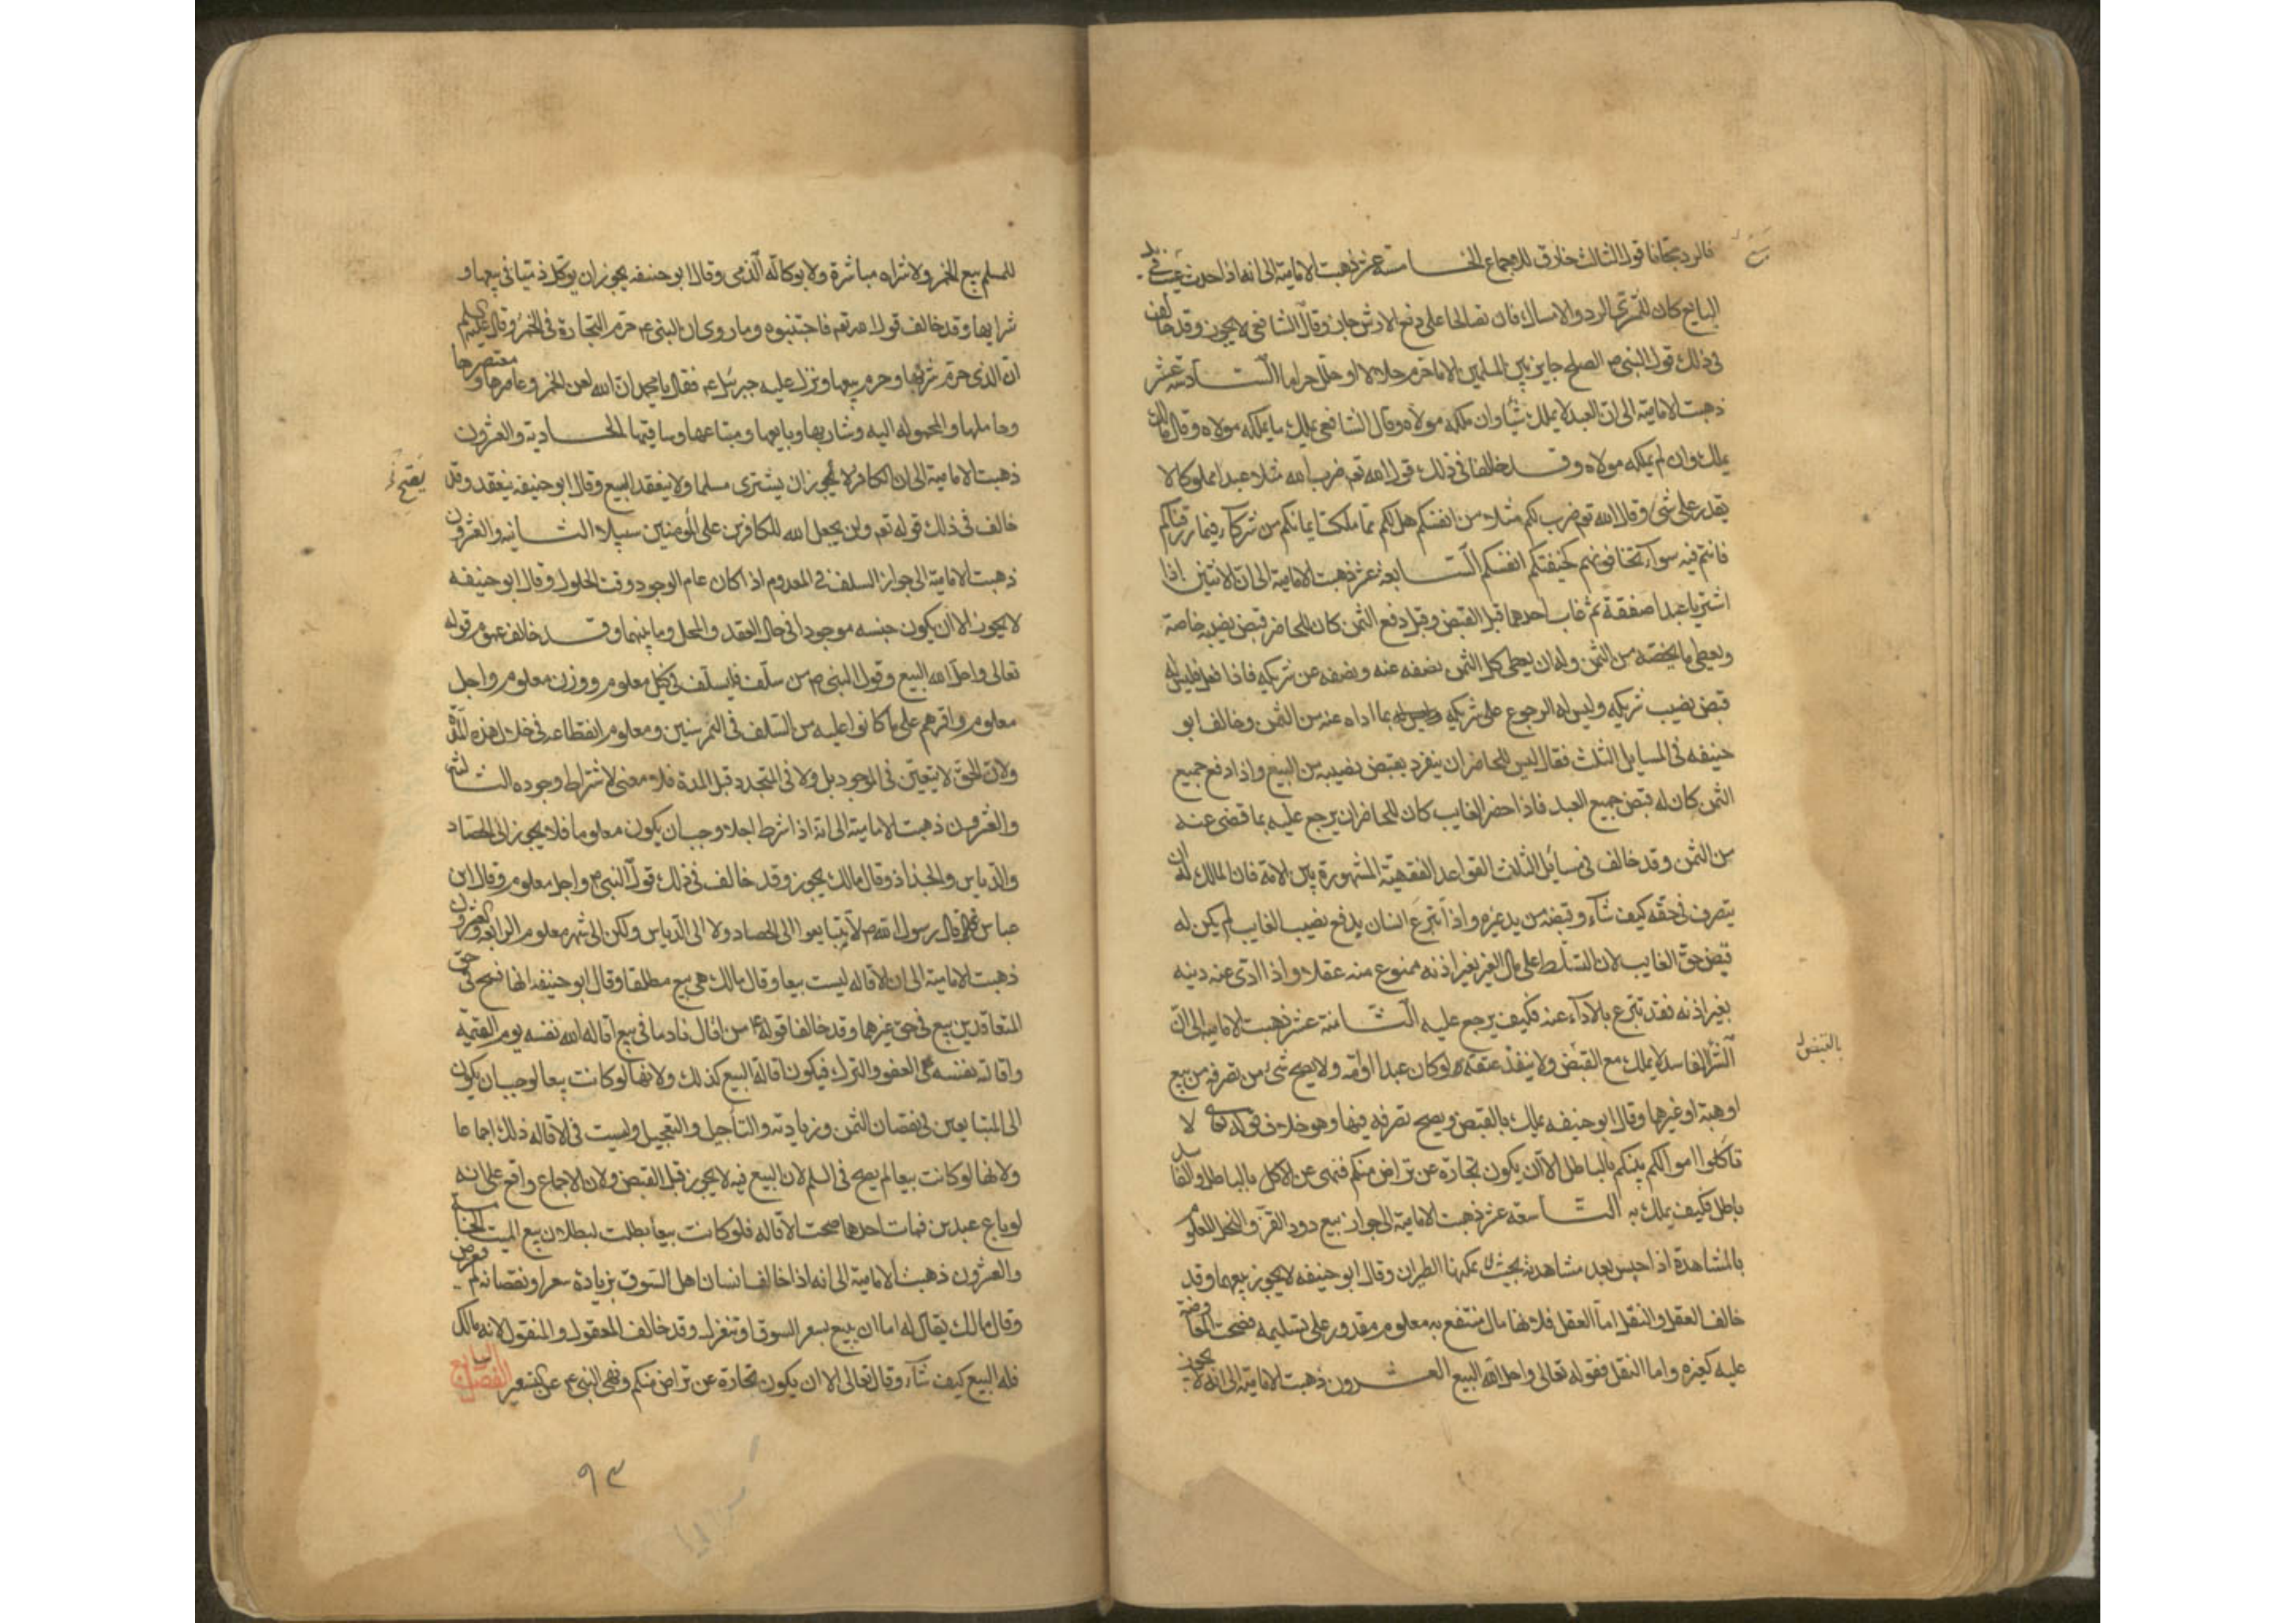 فالرد مجانا قول ثالث خارق للاجماع الخامسة عشر ذهبت الامامية الى انه اذا حدث عيب في يد
البايع كان للمشتري الرد والامساك فان تصالحا على دفع الارش جاز وقال الشافعي لا يجوز وقد خالف
في ذلك قول النبي ص الصلح جايز بين المسلمين الا ما حرم حلالا او حلل حراما السادسة عشر
ذهبت الامامية الى ان العبد لا يملك شيئا وان ملكه مولاه وقال الشافعي يملك ما يملكه مولاه وقال مالك
يملك وان لم يملكه مولاه وقد خالفا في ذلك قول الله تعم ضرب الله مثلا عبدا مملوكا لا
يقدر على شئ وقال الله تعم ضرب لكم مثلا من انفسكم هل لكم مما ملكت ايمانكم من شركاء فيما رزقناكم
فانتم فيه سواء تخافونهم كخيفتكم انفسكم السابعة عشر ذهبت الامامية الى ان الاثنين اذا
اشتريا عبدا صفقة ثم غاب احدهما قبل القبض وقبل دفع الثمن كان للحاضر قبض نصيبه خاصة
ويعطي ما يخصه من الثمن وله ان يعطي كل الثمن نصفه عنه ونصفه عن شريكه فاذا فعل فليس له
قبض نصيب شريكه وليس له الرجوع على شريكه بما اداه عنه من الثمن وخالف ابو
حنيفه في المسايل الثلث فقال ليس للحاضر ان ينفرد بقبض نصيبه من البيع واذا دفع جميع
الثمن كان له قبض جميع العبد فاذا حضر الغايب كان للحاضر ان يرجع عليه بما قضى عنه
من الثمن وقد خالف في مسائل الثلث القواعد الفقهية المشهورة بين الامة فان المالك له ان
يتصرف في حقه كيف شاء وقبضه من يد غيره واذا تبرع انسان بدفع نصيب الغايب لم يكن له
قبض حق الغايب لان التسلط على مال الغير بغير اذنه ممنوع منه عقلا واذا ادى عنه دينه
بغير اذنه فقد تبرع بالاداء عنه فكيف يرجع عليه الثامنة عشر ذهبت الامامية الى ان
الشراء الفاسد لا يملك مع القبض ولا ينفذ عتقه لو كان عبدا او امة ولا يصح شئ من تصرفه من بيع
او هبة او غيرها وقال ابو حنيفه يملك بالقبض ويصح تصرفه فيها وهو خلاف قوله تعالى لا
تاكلوا اموالكم بينكم بالباطل الا ان يكون تجارة عن تراض منكم فنهى عن الاكل بالباطل والفاسد
باطل فكيف يملك به التاسعة عشر ذهبت الامامية الى جواز بيع دود القز والنحل المعلوم
بالمشاهدة اذا حبس بعد مشاهدته بحيث لا يمكنها الطيران وقال ابو حنيفه لا يجوز بيعهما وقد
خالف العقل والنقل اما العقل فلانها مال منتفع به معلوم مقدور على تسليمه فصحت المعاوضة
عليه كغيره واما النقل فقوله تعالى واحل الله البيع العشرون ذهبت الامامية الى انه لا يجوز
بالقبض
للمسلم بيع الخمر ولا شراه مباشرة ولا بوكالة الذمي وقال ابو حنيفه يجوز ان يوكل ذميا في بيعها و
شرايها وقد خالف قول الله تعم فاجتنبوه وما روى ان النبي ع حرم التجارة في الخمر وقال عليه السلم
ان الذي حرم شربها وحرم بيعها ونزل عليه جبرئيل ع فقال يا محمد ان الله لعن الخمر وعاصرها ومعتصرها
وحاملها والمحمولة اليه وشاربها وبايعها ومبتاعها وساقيها الحادية والعشرون
ذهبت الامامية الى ان الكافر لا يجوز ان يشتري مسلما ولا ينعقد البيع وقال ابو حنيفه ينعقد وقد
خالف في ذلك قوله تعم ولن يجعل الله للكافرين على المومنين سبيلا الثانية والعشرون
ذهبت الامامية الى جواز السلف في المعدوم اذا كان عام الوجود وقت الحلول وقال ابو حنيفه
لا يجوز الا ان يكون جنسه موجودا في حال العقد والمحل وما بينهما وقد خالف عموم قوله
تعالى واحل الله البيع وقول النبي ص من سلف فليسلف في كيل معلوم ووزن معلوم واجل
معلوم واقرهم على ما كانوا عليه من السلف في التمر سنين ومعلوم انقطاعه في خلال هذه المدة
ولان الحق لا يتعين في الموجود بل ولا في المتجدد قبل المدة فلا معنى لاشتراط وجوده الثالثة
والعشرون ذهبت الامامية الى انه اذا شرط اجلا وجب ان يكون معلوما فلا يجوز الى الحصاد
والدياس والجذاذ وقال مالك يجوز وقد خالف في ذلك قول النبي ع واجل معلوم وقال ابن
عباس قال رسول الله ص لا تتبايعوا الى الحصاد ولا الى الدياس ولكن الى شهر معلوم الرابعة والعشرون
ذهبت الامامية الى ان الاقاله ليست بيعا وقال مالك هي بيع مطلقا وقال ابو حنيفه انها فسخ في حق
المتعاقدين بيع في حق غيرهما وقد خالفا قوله ع من اقال نادما في بيع اقاله الله نفسه يوم القيمة
واقالة نفسه هي العفو والترك فيكون اقالة البيع كذلك ولانها لو كانت بيعا لوجب ان يكون
الى المتبايعين في نقصان الثمن وزيادته والتأجيل والتعجيل وليست في الاقاله ذلك اجماعا
ولانها لو كانت بيعا لم يصح في السلم لان البيع فيه لا يجوز قبل القبض ولان الاجماع واقع على انه
لو باع عبدين فمات احدهما صحت الاقاله فلو كانت بيعا بطلت لبطلان بيع الميت الخامسة
والعشرون ذهبت الامامية الى انه اذا خالف انسان اهل السوق بزيادة سعر او نقصانه لم يعترض
وقال مالك يقال له اما ان يبيع بسعر السوق او تنعزل وقد خالف المعقول والمنقول لانه مالك
فله البيع كيف شاء وقال تعالى الا ان يكون تجارة عن تراض منكم ونهى النبي ع عن التسعير الفصل السابع
يصح
٩٣